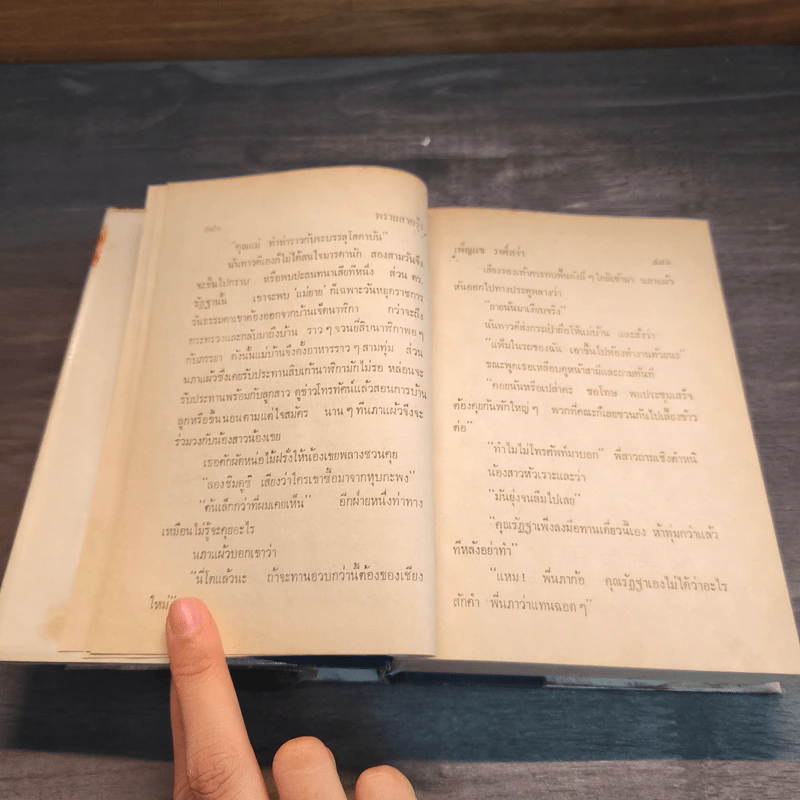 ๕๘๖
พรายสายรุ้ง
"คุณแม่ ทำท่าราวกับจะบรรลุโสดาบัน"
นันทาวดีเองก็ไม่ได้สนใจมารดานัก สองสามวันจึง
จะขึ้นไปกราบ หรือพบปะสนทนาเสียทีหนึ่ง ส่วน ดร.
รัฏฐานั้น เขาจะพบ 'แม่ยาย' ก็เฉพาะวันหยุดราชการ
วันธรรมดาเขาต้องออกจากบ้านเจ็ดนาฬิกา กว่าจะถึง
กระทรวงและกลับมาถึงบ้าน ราว ๆ จวนยี่สิบนาฬิกาพอ ๆ
กับภรรยา ดังนั้นแม่บ้านจึงตั้งอาหารราว ๆ สามทุ่ม ส่วน
นภาแผ้วซึ่งเคยรับประทานสิบเก้านาฬิกามักไม่รอ หล่อนจะ
รับประทานพร้อมกับลูกสาว ดูข่าวโทรทัศน์แล้วสอนการบ้าน
ลูกหรือขึ้นนอนตามแต่ใจสมัคร นาน ๆ ทีนภาแผ้วจึงจะ
ร่วมวงกับน้องสาวน้องเขย
เธอตักผัดหน่อไม้ฝรั่งให้น้องเขยพลางชวนคุย
"ลองชิมดูซิ เสียงว่าใครเขาซื้อมาจากหุบกะพง"
"ต้นเล็กกว่าที่ผมเคยเห็น" อีกฝ่ายหนึ่งท่าทาง
เหมือนไม่รู้จะคุยอะไร
นภาแผ้วบอกเขาว่า
"นี่โตแล้วนะ ถ้าจะทานอวบกว่านี้ต้องของเชียง
ใหม่"
เพ็ญแข วงศ์สง่า
เสียงรองเท้ากระทบพื้นดังถี่ ๆ ใกล้เข้ามา นภาแผ้ว
หันออกไปทางประตูพลางว่า
"ยายนันมาเงียบจริง"
นันทาวดีส่งกระเป๋าถือให้แม่บ้าน และสั่งว่า
"แฟ้มในรถของฉัน เอาขึ้นไปห้องทำงานด้วยนะ"
ขณะพูดเธอเหลือบดูหน้าสามีและถามทันที
"คอยนันหรือเปล่าคะ ขอโทษ พอประชุมเสร็จ
ต้องคุยกันพักใหญ่ ๆ พวกที่คณะก็เลยชวนกันไปเลี้ยงข้าว
ต่อ"
"ทำไมไม่โทรศัพท์มาบอก" พี่สาวถามเชิงตำหนิ
น้องสาวหัวเราะและว่า
"มันยุ่งจนลืมไปเลย"
"คุณรัฏฐาเพิ่งลงมือทานเดี๋ยวนี้เอง ห้าทุ่มกว่าแล้ว
ทีหลังอย่าทำ"
"แหม! พี่นภาก้อ คุณรัฏฐาเองไม่ได้ว่าอะไร
สักคำ พี่นภาว่าแทนฉอด ๆ"